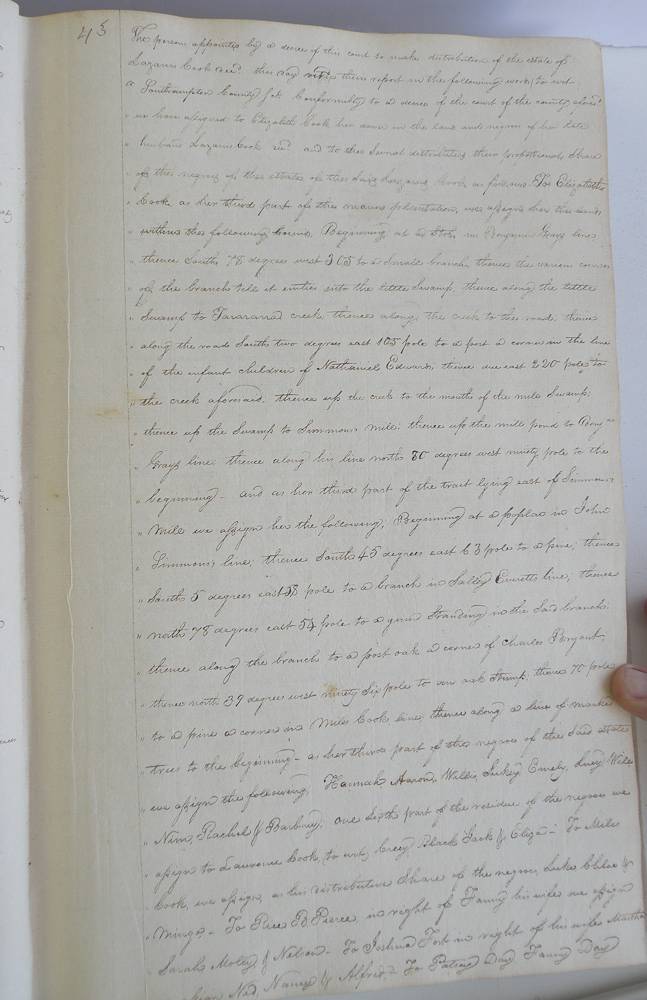 45
The persons appointed by a decree of this court to make distribution of the estate of
Lazarus Cook decd. this day made their report in the following words; to wit
" Southampton County Sct. Conformably to a decree of the court of the county aforesd.
" we have assigned to Elizabeth Cook her dower in the land and negroes of her late
" husband Lazarus Cook decd. and to the several distributees their proportional share
" of the negroes of the estate of the said Lazarus Cook, as follows. To Elizabeth
" Cook, as her third part of the we assign her the land
" within the following bounds, Beginning at a in Benjamin Grays line
" thence South 78 degrees west 305 to a small branch, thence the various courses
" of the branch till it enters into the little Swamp, thence along the little
" Swamp to Tararara creek, thence along the creek to the road, thence
" along the road South two degrees east 105 pole to a post a corner in the line
" of the infant children of Nathaniel Edwards, thence due east 220 pole to
" the creek aforesaid. thence up the creek to the mouth of the mile Swamp;
" thence up the Swamp to Simmons's mill; thence up the mill pond to Benjn.
" Grays line. thence along his line north 80 degrees west ninety pole to the
" beginning - and as her third part of the tract lying east of Simmons's
" Mill we assign her the following, Beginning at a poplar in John
" Simmons's line, thence South 45 degrees east 63 pole to a pine, thence
" South 5 degrees east 58 pole to a branch in Salley Everetts line, thence
" north 78 degrees east 54 pole to a gum Standing in the said branch.
" thence along the branch to a post oak a corner of Charles Bryant,
" thence north 39 degrees west ninety Six pole to an oak Stump, thence 70 pole
" to a pine a corner in Miles Cook line, thence along a line of marked
" trees to the beginning - as her third part of the negroes of the said estate
" we assign the following, Hannah Aaron, Willis, Suckey Emily, Lucy Willis
" Nim, Rachel & Barbary. one sixth part of the residue of the negroes we
" assign to Laurence Cook, to wit, Creasy, Black Jack & Eliza - To Miles
" Cook, we assign, as his distributive share of the negroes, Luke Chloe &
" Mingo - To Rice B Pierce in right of Fanny his wife we assign
" Sarah Moley & Nelson - To Joshua Fort in right of his wife Martha
" Ned, Nancy & Alfred - To Patsey Day Fanny Day